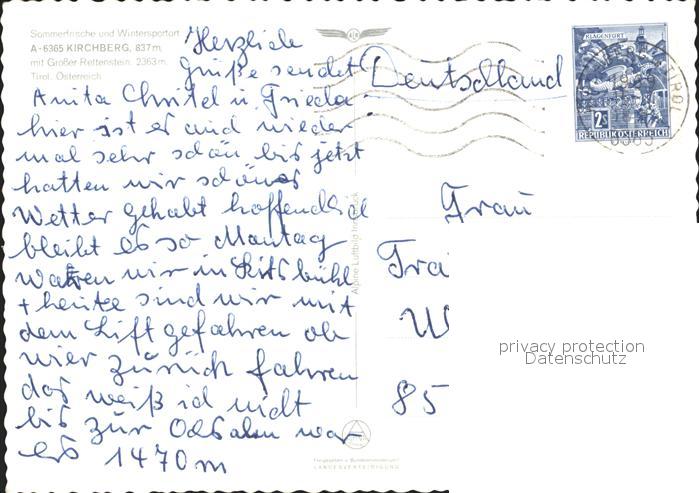 Sommerfrische und Wintersportort
A-6365 KIRCHBERG, 837 m,
mit Großer Rettenstein, 2363 m,
Tirol, Österreich
Herzliche
Grüße sendet
Anita Christel u. Frieda.
hier ist es auch wieder
mal sehr schön bis jetzt
hatten wir schönes
Wetter gehabt hoffendlich
bleibt es so Montag
waren wir in Kitsbühl
+ heute sind wir mit
dem Lift gefahren ob
wier zürück fahren
das weiß ich nicht
bis zur
war
es 1470 m
Alpine Luftbild Innsbruck
LANDESVERTEIDIGUNG
Deutschland
KLAGENFURT
2S
REPUBLIK ÖSTERREICH
TIROL
6365
Frau
Fra
W
85
privacy protection
Datenschutz